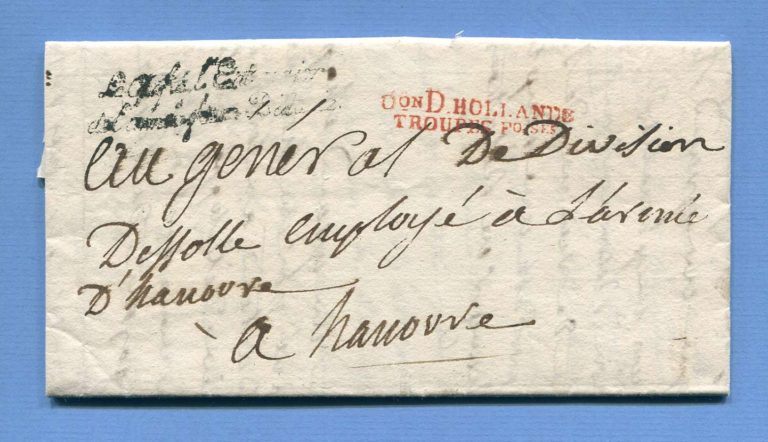 Le
de l'armée
Bon D. HOLLANDE
TROUPES FOSES
Au général De Division
Dessolle employé à L'armée
D'hanovre
a hanovre